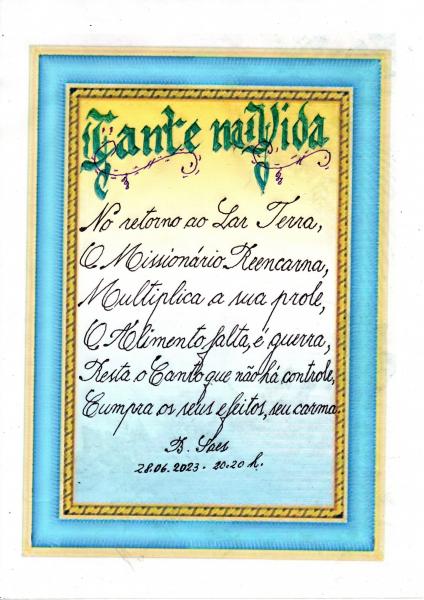 Cante na Vida
No retorno ao Lar Terra,
O Missionário Reencarna,
Multiplica a sua prole,
O Alimento falta, é guerra,
Resta o Canto que não há controle,
Cumpra os seus efeitos, seu carma.
B. Saes
28.06.2023 - 20:20 h.